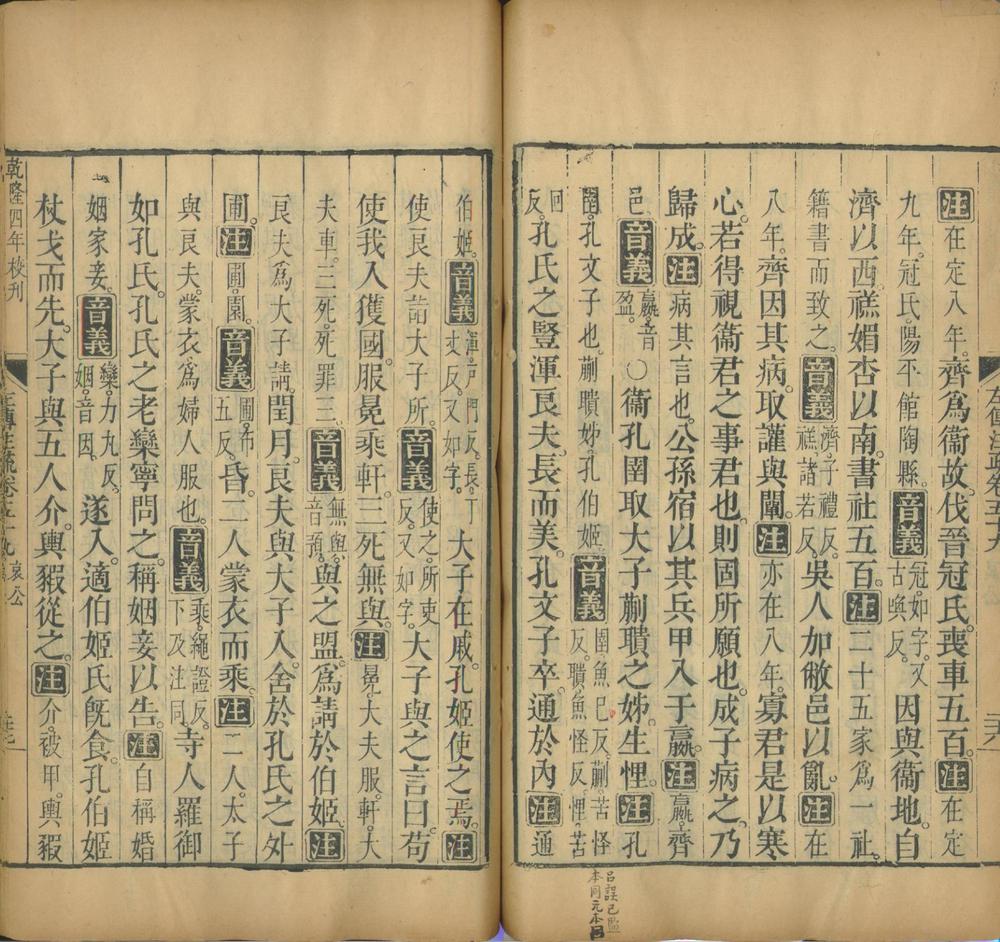 左傳注疏卷五十九
注在定八年齊爲衞故伐晉冠氏喪車五百注在定
九年冠氏陽平館陶縣音義冠如字又古喚反因與衞地自
濟以西禚媚杏以南書社五百注二十五家爲一社
籍書而致之音義濟子禮反禚諸若反吳人加敝邑以亂注在
八年齊因其病取讙與闡注亦在八年寡君是以寒
心若得視衞君之事君也則固所願也成子病之乃
歸成注病其言也公孫宿以其兵甲入于嬴注嬴齊
邑音義嬴音盈〇衞孔圉取大子蒯聵之姊生悝注孔
圉孔文子也蒯聵姊孔伯姬音義圉魚巳反蒯苦怪反聵魚怪反悝苦
回反孔氏之豎渾良夫長而美孔文子卒通於內注通
呂誤已監
本同元本
伯姬音義渾戶門反長丁丈反又如字大子在戚孔姬使之焉注
使良夫詣大子所音義使之所吏反又如字大子與之言曰苟
使我入獲國服冕乘軒三死無與注冕大夫服軒大
夫車三死死罪三音義無與音預與之盟爲請於伯姬注
良夫爲大子請閏月良夫與大子入舍於孔氏之外
圃注圃園音義圃布五反昏二人蒙衣而乘注二人太子
與良夫蒙衣爲婦人服也音義乘繩證反下及注同寺人羅御
如孔氏孔氏之老欒寧問之稱姻妾以告注自稱婚
姻家妾音義欒力九反姻音因遂入適伯姬氏旣食孔伯姬
杖戈而先大子與五人介輿豭從之注介被甲輿豭
乾隆四年校刊
左傳注疏卷五十九 哀公